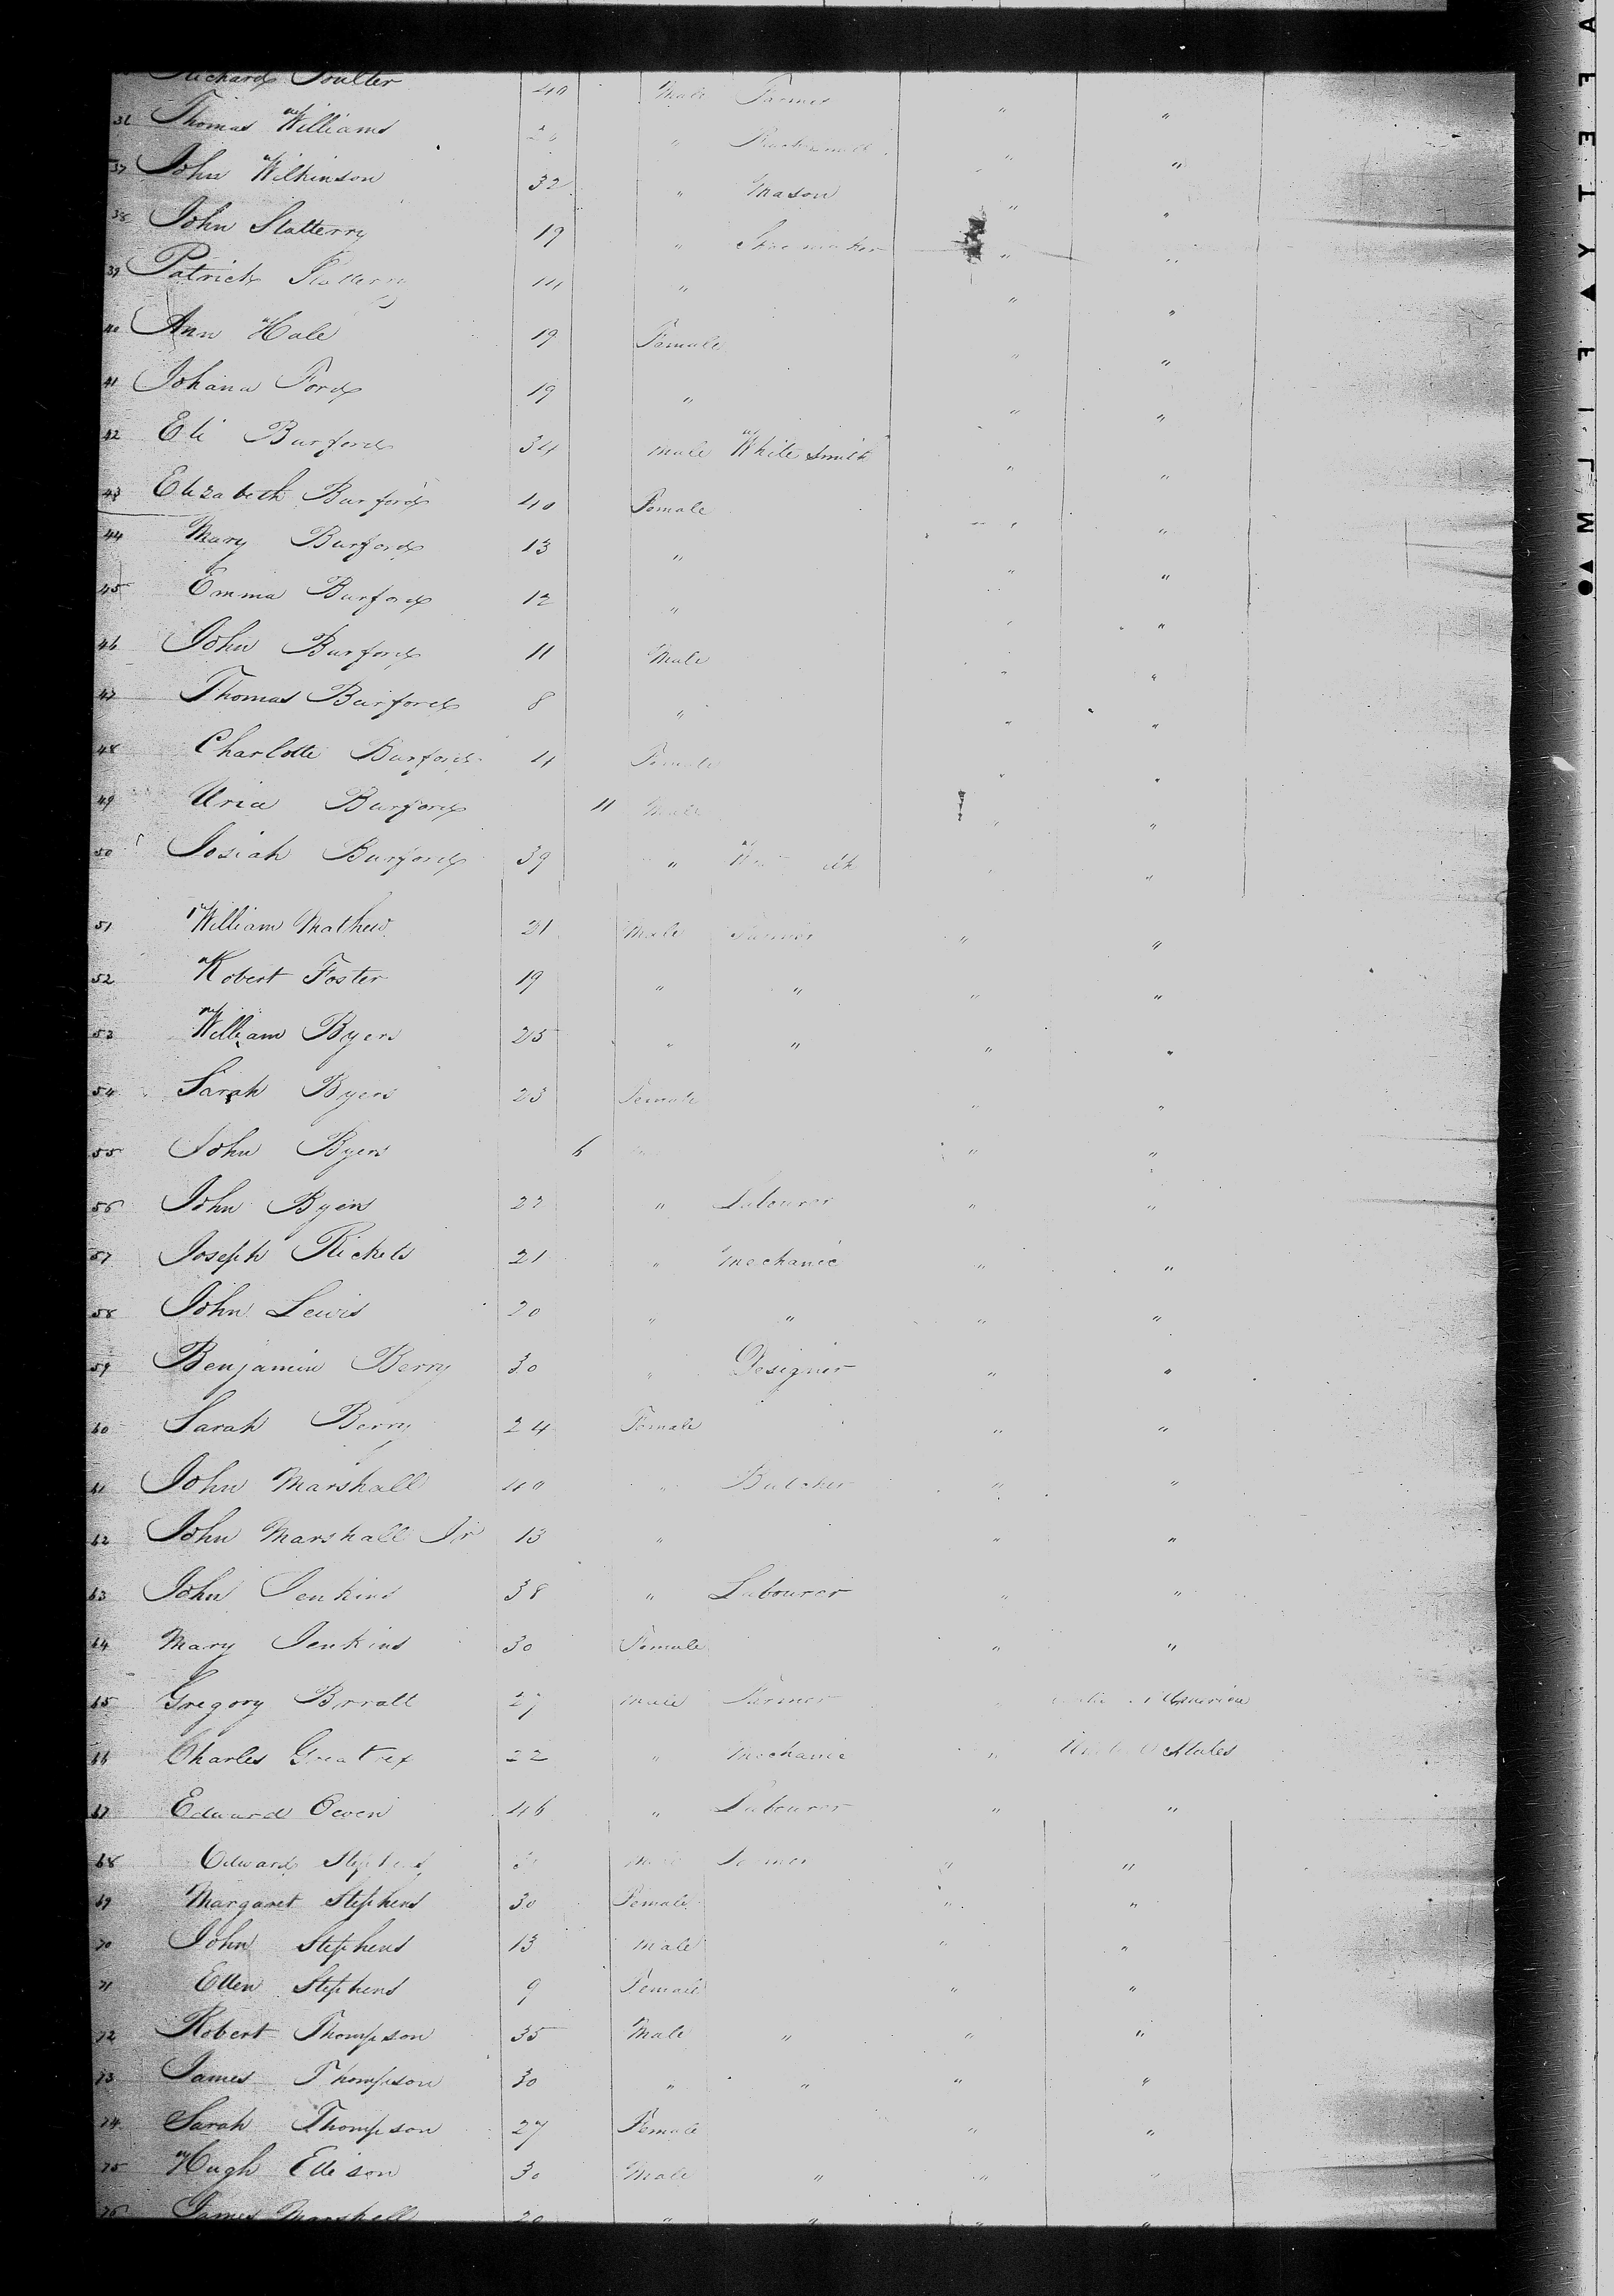 Richard Poulter 40 Male Farmer
36 Thomas Williams " " "
37 John Wilkinson 32 " Mason " "
38 John Slatterry 19 " Shoe maker " "
39 Patrick Slatterry " " "
40 Ann Hale 19 Female " "
41 Johana Ford 19 " " "
42 Eli Burford 34 male White Smith " "
43 Elizabeth Burford 40 Female " "
44 Mary Burford 13 " " "
45 Emma Burford 12 " " "
46 John Burford 11 Male " "
47 Thomas Burford 8 " " "
48 Charlotte Burford 4 Female " "
49 Uria Burford 11 Male " "
50 Josiah Burford 39 " " "
51 William Mathew 21 Male Farmer " "
52 Robert Foster 19 " " " "
53 William Byers 25 " " " "
54 Sarah Byers 23 Female " "
55 John Byers 6 " "
56 John Byers 22 " Labourer " "
57 Joseph Rickets 21 " Mechanic " "
58 John Lewis 20 " " " "
59 Benjamin Berry 30 " Designer " "
60 Sarah Berry 24 Female " "
61 John Marshall 40 " Butcher " "
62 John Marshall Jr 13 " " "
63 John Jenkins 38 " Labourer " "
64 Mary Jenkins 30 Female " "
65 Gregory 27 Male Farmer America
66 Charles Greatrex 22 " Mechanic " United States
67 Edward Owen 46 " Labourer " "
68 Edward Stephens Male Farmer " "
69 Margaret Stephens 30 Female " "
70 John Stephens 13 Male " "
71 Ellen Stephens 9 Female " "
72 Robert Thompson 35 Male " " "
73 James Thompson 30 " " " "
74 Sarah Thompson 27 Female " "
75 Hugh Ellison 30 Male " " "
76 James Marshall 20 " " " "